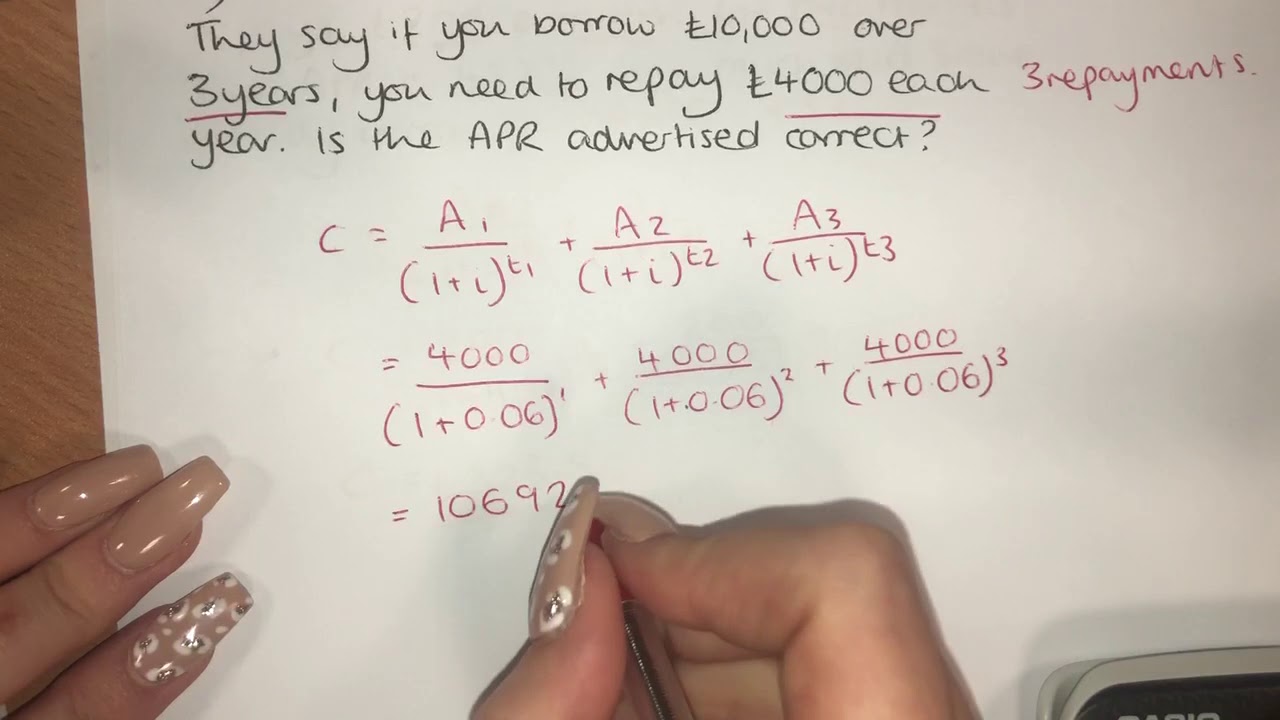 They say if you borrow £10,000 over
3years, you need to repay £4000 each 3repayments.
year. Is the APR advertised correct?
C = A1/(1+i)^t1 + A2/(1+i)^t2 + A3/(1+i)^t3
= 4000/(1+0.06)^1 + 4000/(1+.0.06)^2 + 4000/(1+0.06)^3
= 10692